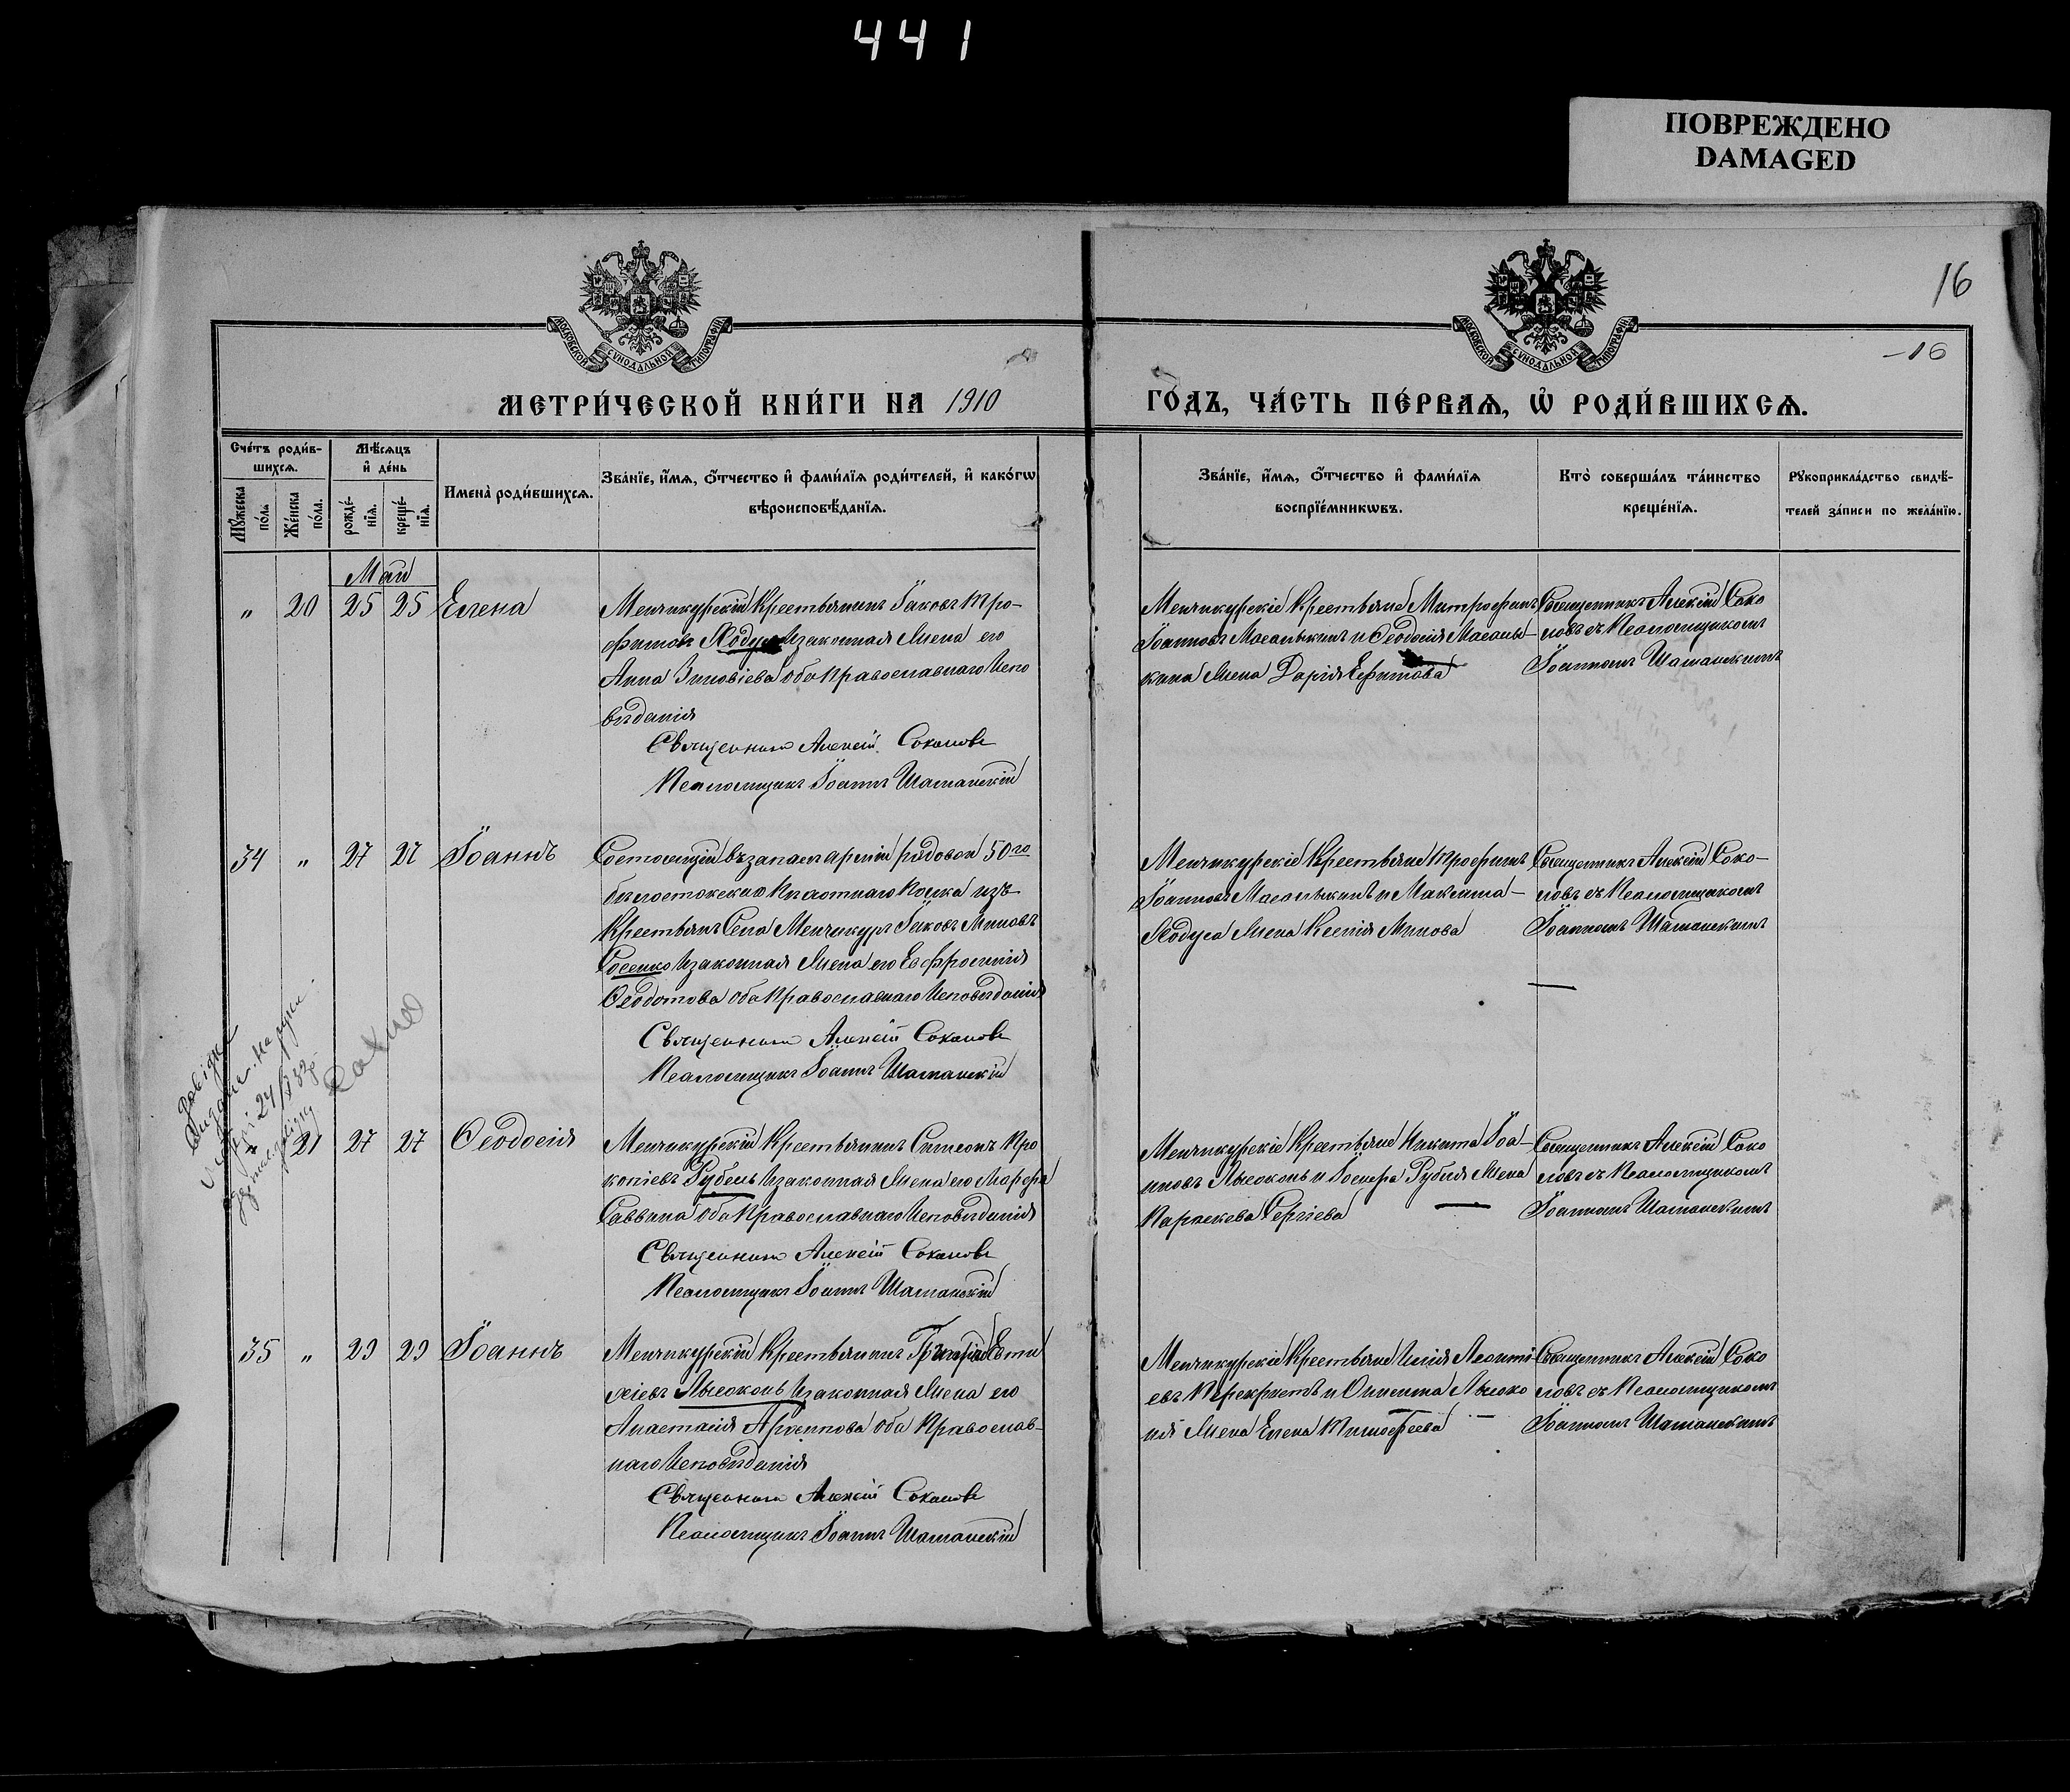 441
ПОВРЕЖДЕНО
DAMAGED
16
-16
МОСКОВСКОЙ СУНОДАЛЬНОЙ ТИПОГРАФІИ
МОСКОВСКОЙ СУНОДАЛЬНОЙ ТИПОГРАФІИ
МЕТРИ́ЧЕСКОЙ КНИ́ГИ НА 1910
ГО́ДЪ, ЧА́СТЬ ПЕ́РВАѦ, Ѡ҆ РОДИ́ВШИХСѦ.
Сче́тъ роди́в-
шихсѧ.
Мꙋ́жеска по́лъ
Же́нска по́ла.
Мѣ́сѧцъ
и҆ де́нь
рожде́-
нїѧ.
креще́-
нїѧ.
Имена̀ роди́вшихсѧ.
Зва́нїе, и҆́мѧ, ѻ҆́тчество и҆ фами́лїѧ роди́телей, и҆ како́гѡ
вѣроисповѣ́данїѧ.
Зва́нїе, и҆́мѧ, ѻ҆́тчество и҆ фами́лїѧ
воспрїе́мникѡвъ.
Кто̀ соверша́лъ та́инство
креще́нїѧ.
Рꙋкоприкла́дство свидѣ́-
телей за́писи по жела́нїю.
Май
" 20 25 25 Елена
Менчикурскій Крестьянинъ Іаковъ Тро-
фимовъ и законная жена его
Анна Зиновіева оба Православнаго Испо
вѣданія
Священникъ Алексій Соколовъ
Псаломщикъ Іоаннъ Шаманскій
Менчикурскіе Крестьяне Митрофанъ
Іоанновъ Масалыкинъ и Ѳеодосія Масалы-
кина жена Дарія Ефимова
Священникъ Алексій Соко
ловъ съ Псаломщикомъ
Іоанномъ Шаманскимъ
34 " 27 27 Іоаннъ
Состоящій въ запасѣ арміи рядовой 50го
бѣлостокскаго Пѣхотнаго Полка изъ
Крестьянъ Села Менчикуръ Іаковъ Миновъ
Сосенко и законная жена его Евфросинія
Ѳеодотова оба Православнаго Исповѣданія
Священникъ Алексій Соколовъ
Псаломщикъ Іоаннъ Шаманскій
Менчикурскіе Крестьяне Трофимъ
Іоанновъ Масалыкинъ и Максима
жена Ксенія Минова
Священникъ Алексій Соко-
ловъ съ Псаломщикомъ
Іоанномъ Шаманскимъ
21 27 27 Ѳеодосія
Менчикурскій Крестьянинъ Симеонъ Про
копіевъ Рубель и законная жена его Марфа
Саввина оба Православнаго Исповѣданія
Священникъ Алексій Соколовъ
Псаломщикъ Іоаннъ Шаманскій
Менчикурскіе Крестьяне Никита Іоа-
нновъ Лысоконь и Іосифа Рубля жена
Параскева Сергіева
Священникъ Алексій Соко
ловъ съ Псаломщикомъ
Іоанномъ Шаманскимъ
35 " 29 29 Іоаннъ
Менчикурскій Крестьянинъ Григорій Евти
хіевъ Лысоконь и законная жена его
Анастасія Архиппова оба Православ-
наго Исповѣданія
Священникъ Алексій Соколовъ
Псаломщикъ Іоаннъ Шаманскій
Менчикурскіе Крестьяне Илія Леонті
евъ Перекрестъ и Онисима Лысоко
ня жена Елена Тимофеева
Священникъ Алексій Соко
ловъ съ Псаломщикомъ
Іоанномъ Шаманскимъ